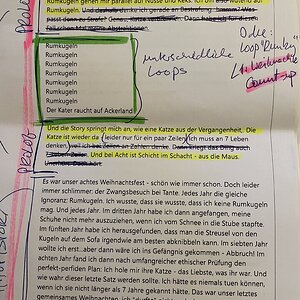 Rumkugeln genen mir parallel auf Nüsse und Keks. Ich bin also wütend auf
Rumkugeln. Und deshalb denke ich gerade an Bestrafung. Was
passt denn zu Strafe? Genau, Katze Dabei habe ich für diesen
fall schon
Rumkugeln
Rumkugeln
Rumkugeln
Rumkugeln
Rumkugeln
Rumkugeln
Der Kater raucht auf Ackerland
unterschiedliche
Loops
Ode:
loop "Runken"
Count up
PROLOG
Und die Story springt mich an, wie eine Katze aus der Vergangenheit. Die
Katze ist wieder da (leider nur für ein paar Zeilen) ich muss an 7 Leben
denken, weil ich bei Zeilen an Zahlen denke. Dann kriegt das Ding auch
7 Leben Zeilen. Und bei Acht ist Schicht im Schacht - aus die Maus.
Es war unser achtes Weihnachtsfest - schön wie immer schon. Doch leider
immer schlimmer: der Zwangsbesuch bei Tante. Jedes Jahr die gleiche
Ignoranz: Rumkugeln. Ich wusste, dass sie wusste, dass ich keine Rumkugeln
mag. Und jedes Jahr. Im dritten Jahr habe ich dann angefangen, meine
Schuhe nicht mehr auszuziehen, wenn ich vom Schnee in die Stube stapfte.
Im fünften Jahr habe ich herausgefunden, dass man die Streusel von den
Kugeln auf dem Sofa irgendwie am besten abknibbeln kann. Im siebten Jahr
wollte ich erst, aber dann wäre ich ins Gefängnis gekommen - Abbruch! Im
achten Jahr fand ich dann nach umfangreicher ethischer Prüfung den
perfekt-perfiden Plan: Ich hole mir ihre Katze - das Liebste, was ihr war. Und
wie wahr dieser letzte Satz werden sollte. Ich hätte es niemals tuen können,
wenn ich sie nicht länger als 7 Jahre gekannt hätte. Das war unser letztes
gemeinsames Weihnachten. Ich